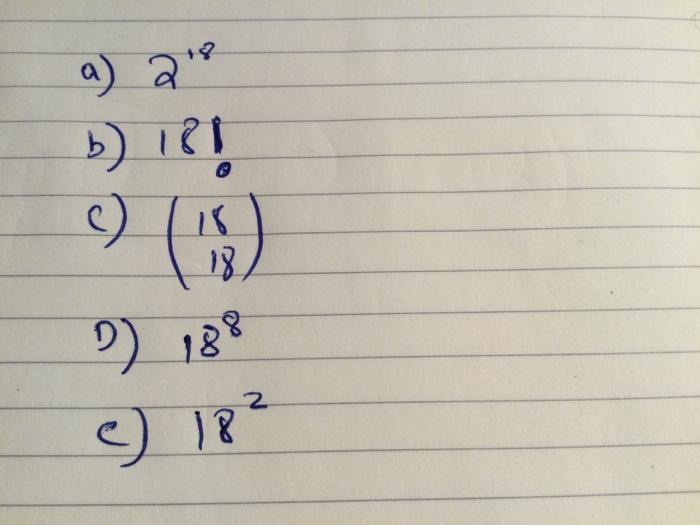 a) 2^18
b) 18!
c) (18
18)
D) 18^8
e) 18^2